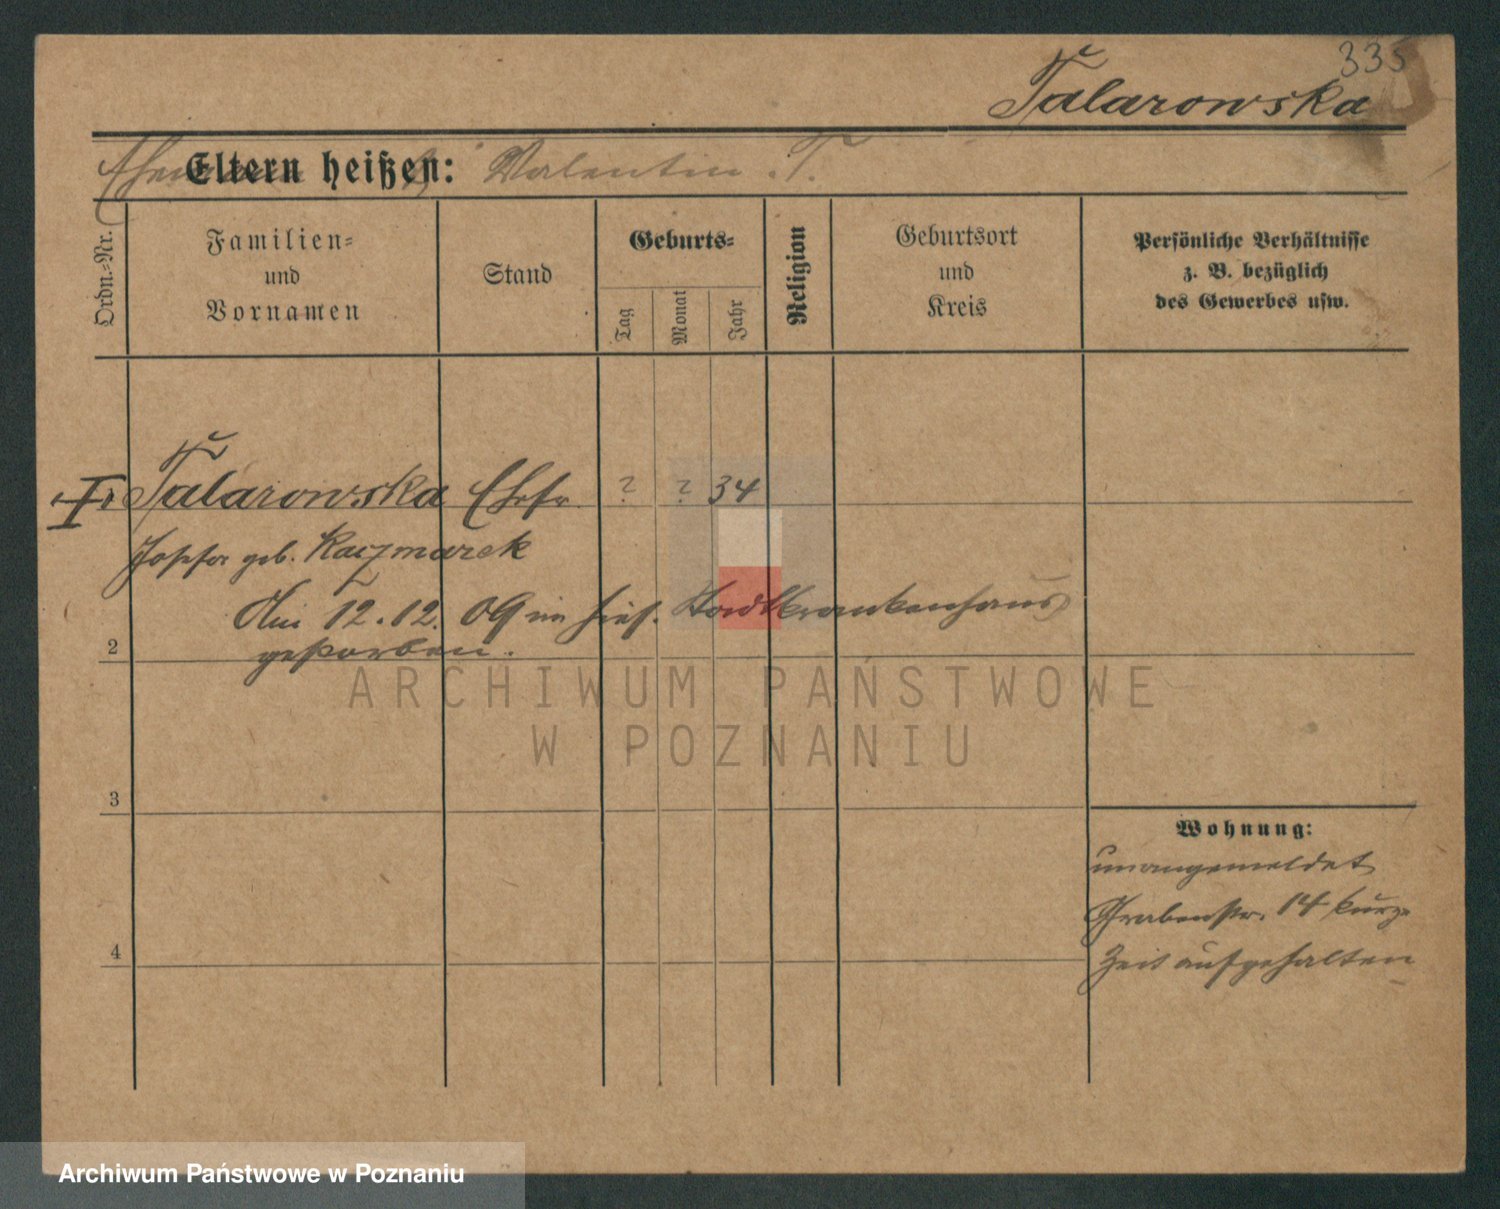 335
Talarowska
Eltern heißen: Valentin T.
Ordn.-Nr.
Familien-
und
Vornamen
Stand
Geburts-
Tag
Monat
Jahr
Religion
Geburtsort
und
Kreis
Persönliche Verhältnisse
z. B. bezüglich
des Gewerbes usw.
Talarowska Ehefr. ? ? 34
Josefa geb. Kaczmarek
Am 12.12.09 im hies. Stadtkrankenhaus
gestorben.
2
ARCHIWUM PAŃSTWOWE
W POZNANIU
3
Wohnung:
unangemeldet
Grabenstr. 14 kurze
Zeit aufgehalten
4
Archiwum Państwowe w Poznaniu